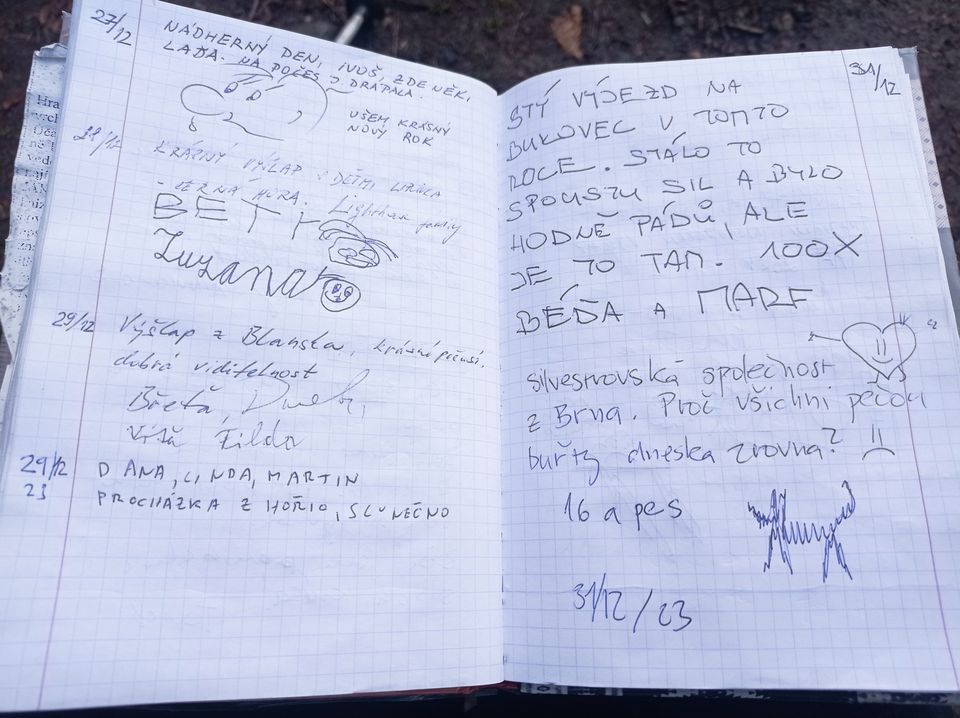 27/12
NÁDHERNÝ DEN, IVOŠ, ZDENĚK,
LAĎA. NA POČES J DRÁPALA.
VŠEM KRÁSNÝ
NOVÝ ROK
28/12
KRÁSNÝ VÝŠLAP S DĚTMI
HORA.
BETY
Zuzana
29/12
Výšlap z Blanska, krásné počasí,
dobrá viditelnost
Břeťa,
29/12
23
DANA, LINDA, MARTIN
PROCHÁZKA Z HOŘIC, SLUNEČNO
31/12
STÝ VÝJEZD NA
BUKOVEC V TOMTO
ROCE. STÁLO TO
SPOUSTU SIL A BYLO
HODNĚ PÁDŮ, ALE
JE TO TAM. 100X
BÉĎA A
silvestrovská společnost
z Brna. Proč všichni pečou
buřty dneska zrovna?
16 a pes
31/12/23